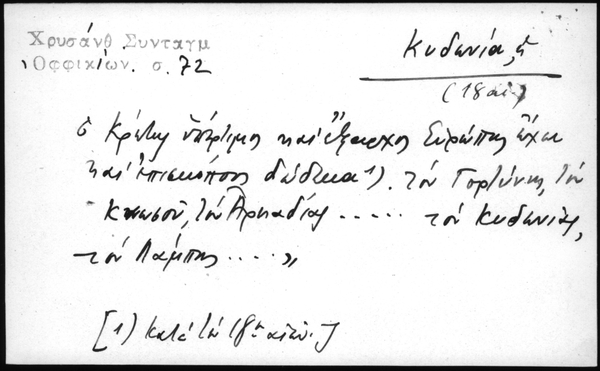 Χρυσάνθ Συνταγμ
Ὀφφικίων. σ. 72
Κυδωνία, ἡ
(18 αἰ)
ὁ Κρήτης ὑπέρτιμος καὶ ἔξαρχος Εὐρώπης ἔχει
καὶ ἐπισκόπους δώδεκα 1). τὸν Γορτύνης, τὸν
Κνωσοῦ, τὸν Ἀρκαδίας ..... τὸν Κυδωνίας,
τὸν Λάμπης ....»
[1) κατὰ τὸν 18ον αἰῶν.]